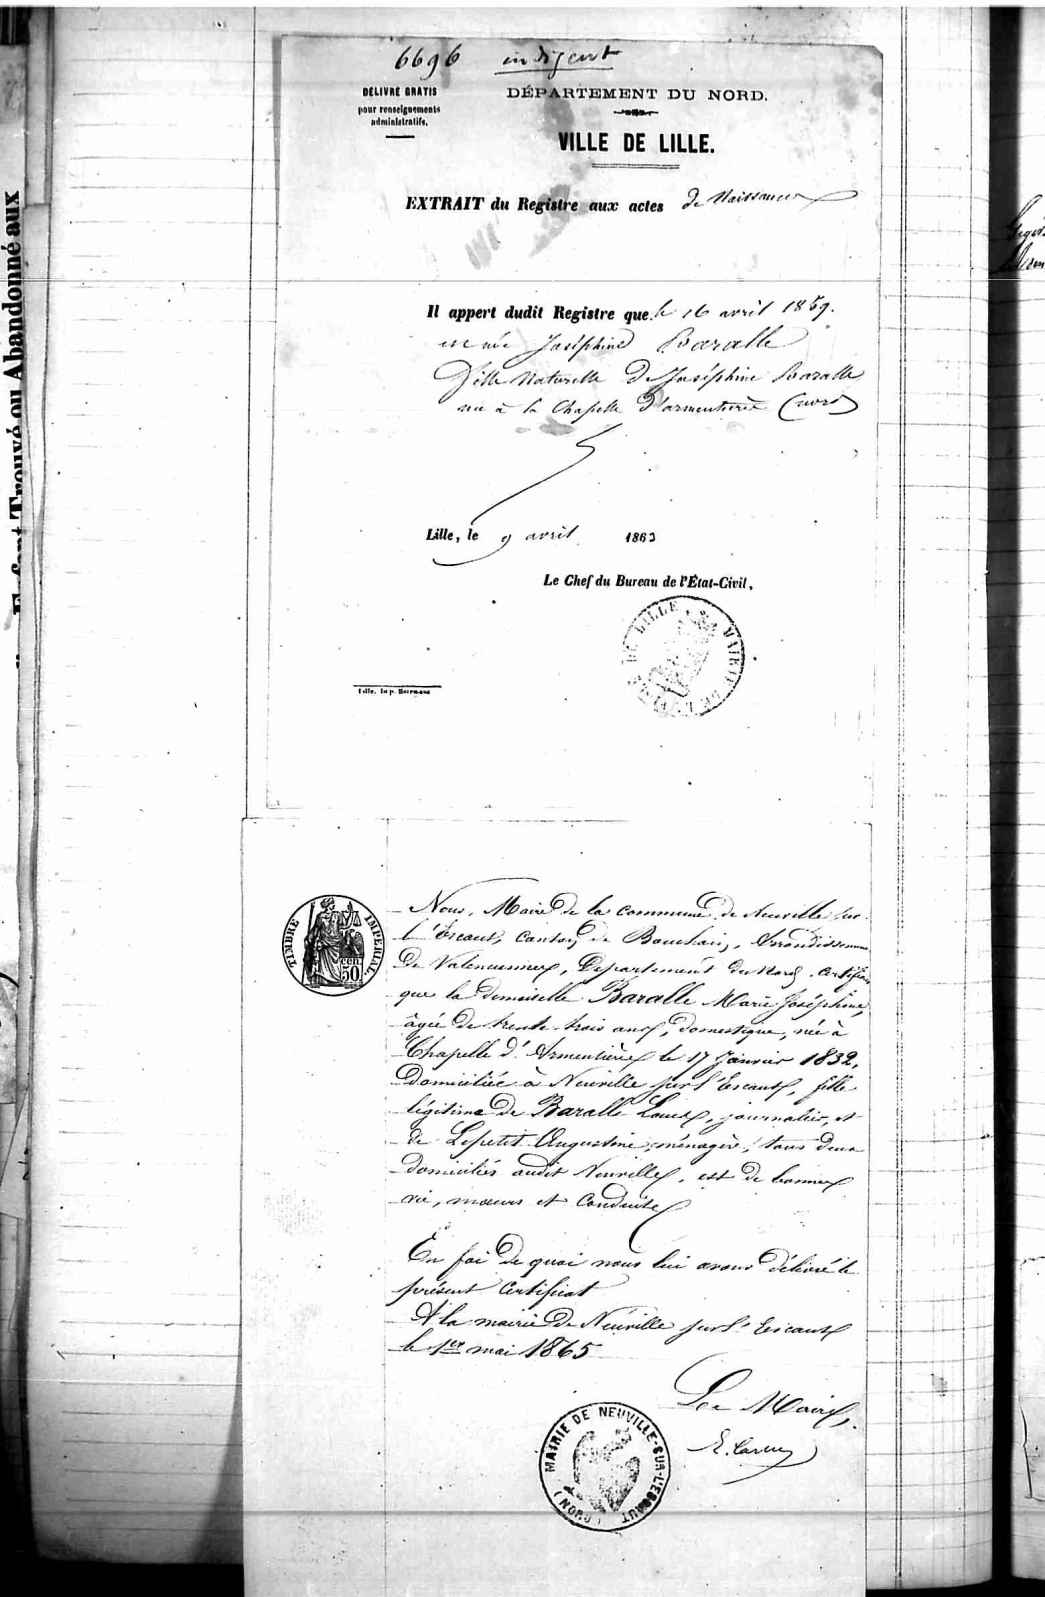 6696 indigent
DÉLIVRÉ GRATIS
pour renseignements
administratifs.
DÉPARTEMENT DU NORD.
VILLE DE LILLE.
EXTRAIT du Registre aux actes de Naissances
Il appert dudit Registre que le 16 avril 1859.
est née Joséphine Baralle
fille Naturelle de Joséphine Baralle
née à la Chapelle d'armentières (nord)
Lille, le 9 avril 1863
Le Chef du Bureau de l'État-Civil,
MAIRIE DE LILLE
Lille. Imp.
TIMBRE IMPERIAL
50 cen
Nous, Maire de la commune de Neuville sur
l'Escaut, Canton de Bouchain, Arrondissement
de Valenciennes, Département du Nord, certifions
que la demoiselle Baralle Marie Joséphine,
âgée de trente-trois ans, domestique, née à
Chapelle d'Armentières le 17 Janvier 1832,
domiciliée à Neuville sur l'Escaut, fille
légitime de Baralle Louis, journalier, et
de Lepetit Augustine, ménagère, tous deux
domiciliés audit Neuville, est de bonnes
vie, mœurs et Conduite
En foi de quoi nous lui avons délivré le
présent Certificat
A la mairie de Neuville sur l'Escaut
le 1er mai 1865
Le Maire,
MAIRIE DE NEUVILLE-SUR-L'ESCAUT
(NORD)
Enfant Trouvé ou Abandonné aux